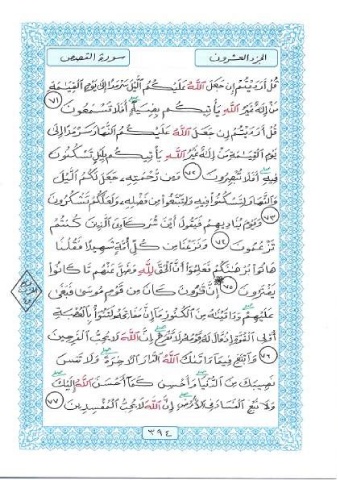 الجزء العشرون
سورة القصص
قُلْ أَرَءَيْتُمْ إِن جَعَلَ اللَّهُ عَلَيْكُمُ الَّيْلَ سَرْمَدًا إِلَىٰ يَوْمِ الْقِيَٰمَةِ
مَنْ إِلَٰهٌ غَيْرُ اللَّهِ يَأْتِيكُم بِضِيَآءٍ أَفَلَا تَسْمَعُونَ ٧١
قُلْ أَرَءَيْتُمْ إِن جَعَلَ اللَّهُ عَلَيْكُمُ النَّهَارَ سَرْمَدًا إِلَىٰ
يَوْمِ الْقِيَٰمَةِ مَنْ إِلَٰهٌ غَيْرُ اللَّهِ يَأْتِيكُم بِلَيْلٍ تَسْكُنُونَ
فِيهِ أَفَلَا تُبْصِرُونَ ٧٢ وَمِن رَّحْمَتِهِ جَعَلَ لَكُمُ الَّيْلَ
وَالنَّهَارَ لِتَسْكُنُوا فِيهِ وَلِتَبْتَغُوا مِن فَضْلِهِ وَلَعَلَّكُمْ تَشْكُرُونَ
٧٣ وَيَوْمَ يُنَادِيهِمْ فَيَقُولُ أَيْنَ شُرَكَآءِيَ الَّذِينَ كُنتُمْ
تَزْعُمُونَ ٧٤ وَنَزَعْنَا مِن كُلِّ أُمَّةٍ شَهِيدًا فَقُلْنَا
هَاتُوا بُرْهَٰنَكُمْ فَعَلِمُوا أَنَّ الْحَقَّ لِلَّهِ وَضَلَّ عَنْهُم مَّا كَانُوا
يَفْتَرُونَ ٧٥ إِنَّ قَٰرُونَ كَانَ مِن قَوْمِ مُوسَىٰ فَبَغَىٰ
عَلَيْهِمْ وَءَاتَيْنَٰهُ مِنَ الْكُنُوزِ مَآ إِنَّ مَفَاتِحَهُ لَتَنُوأُ بِالْعُصْبَةِ
أُولِي الْقُوَّةِ إِذْ قَالَ لَهُ قَوْمُهُ لَا تَفْرَحْ إِنَّ اللَّهَ لَا يُحِبُّ الْفَرِحِينَ
٧٦ وَابْتَغِ فِيمَآ ءَاتَىٰكَ اللَّهُ الدَّارَ الْأَخِرَةَ وَلَا تَنسَ
نَصِيبَكَ مِنَ الدُّنْيَا وَأَحْسِن كَمَآ أَحْسَنَ اللَّهُ إِلَيْكَ
وَلَا تَبْغِ الْفَسَادَ فِي الْأَرْضِ إِنَّ اللَّهَ لَا يُحِبُّ الْمُفْسِدِينَ ٧٧
٣٩٤